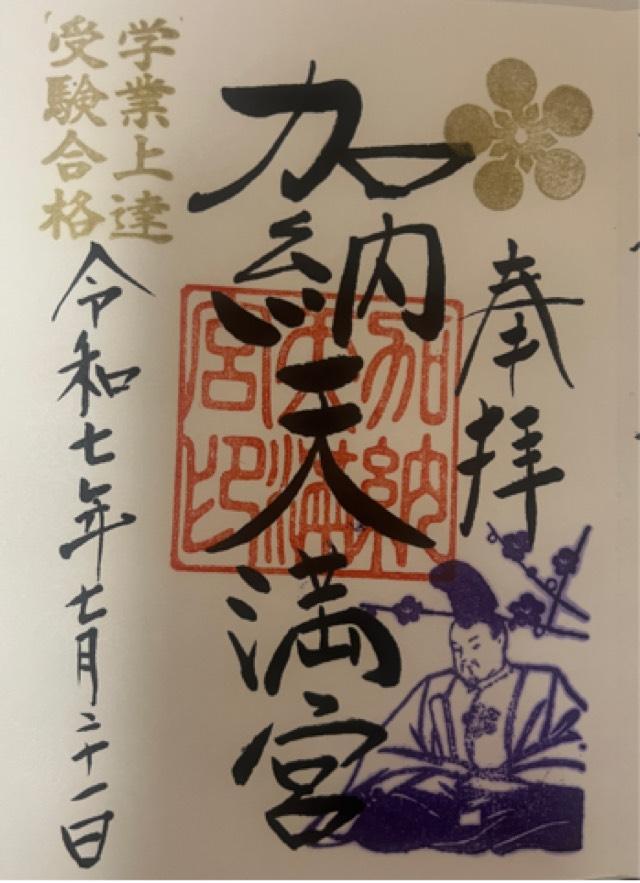 奉拝
加納天満宮
加納天満宮印
学業上達
受験合格
令和七年七月二十一日